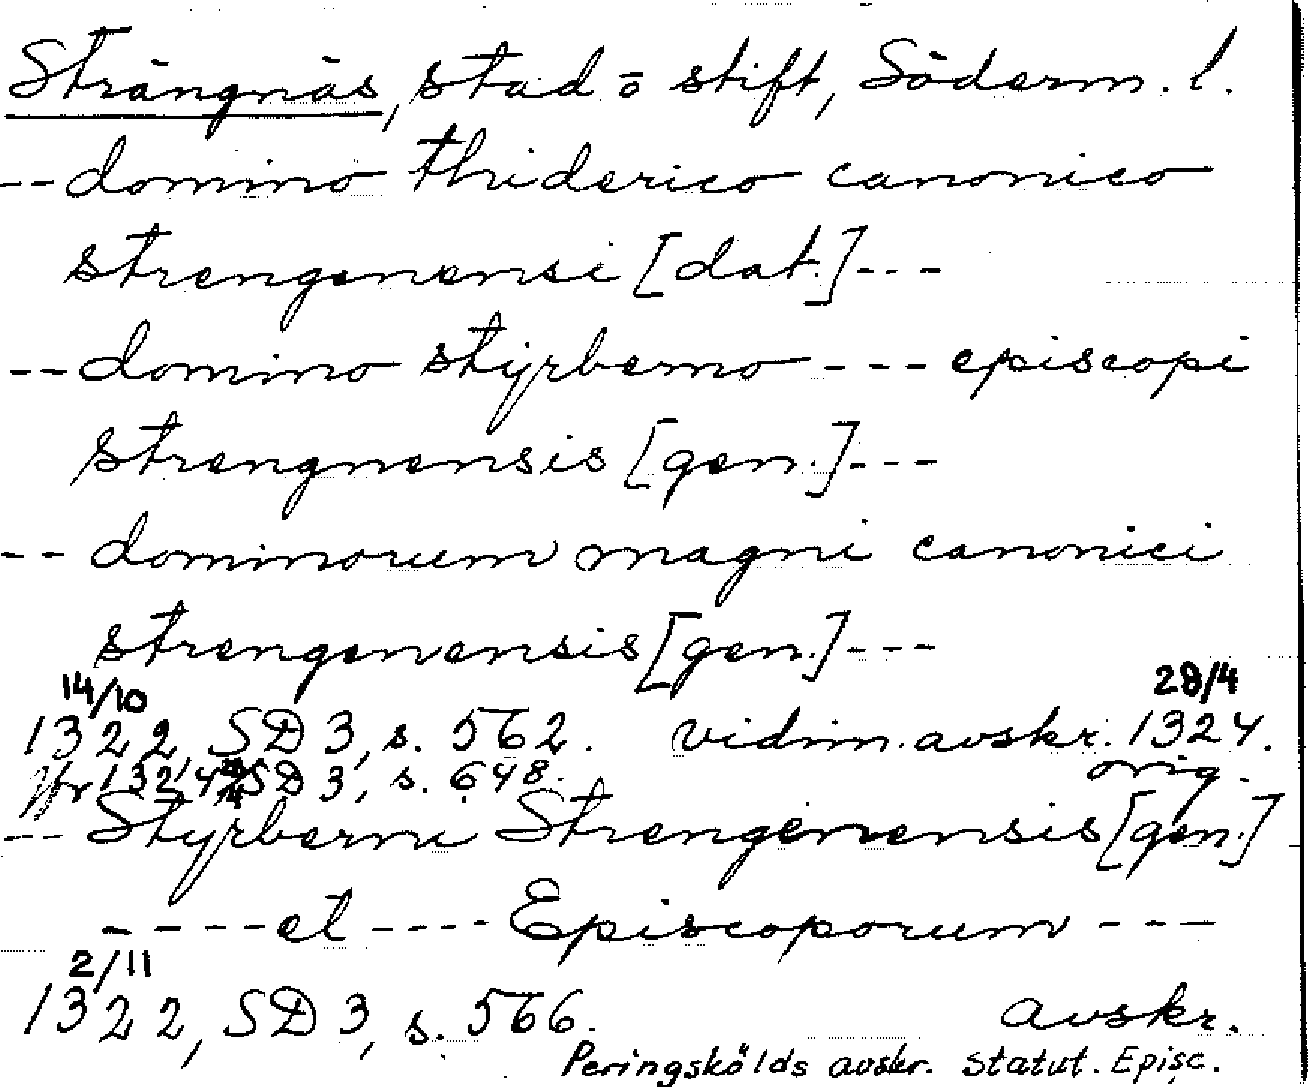 Strängnäs, stad o stift, Söderm. l.
-- domino thiderico canonico
strengenensi [dat.] ---
-- domino styrberno --- episcopi
strengnensis [gen.] ---
-- dominorum magni canonici
strengenensis [gen.] ---
14/10 28/4
1322, SD 3, s. 562. vidim. avskr. 1324.
Jfr 1324 28/4 SD 3, s. 648. orig.
-- Styrberni Strengenensis [gen.]
---- et ---- Episcoporum ---
2/11
1322, SD 3, s. 566. avskr.
Peringskölds avskr. Statut. Episc.